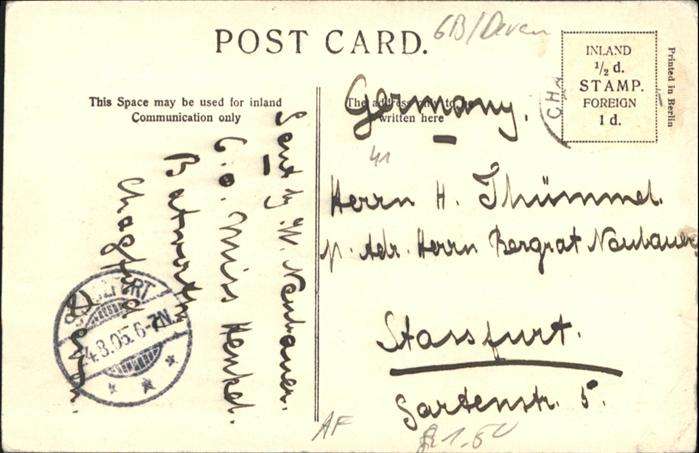 GB/Devon
POST CARD.
INLAND
½ d.
STAMP.
FOREIGN
1 d.
Printed in Berlin
This Space may be used for inland
Communication only
The address only to be
written here
Germany.
41
Herrn H. Thümmel.
p. Adr. Herrn Bergrat Neubauer
Stassfurt.
Gartenstr. 5.
Sent by W. Neubauer.
C. o. Miss Henkel.
Batworthy
Chagford
Devon.
STASSFURT
4.8.05.6-7N.
CHA
AF
£1.50